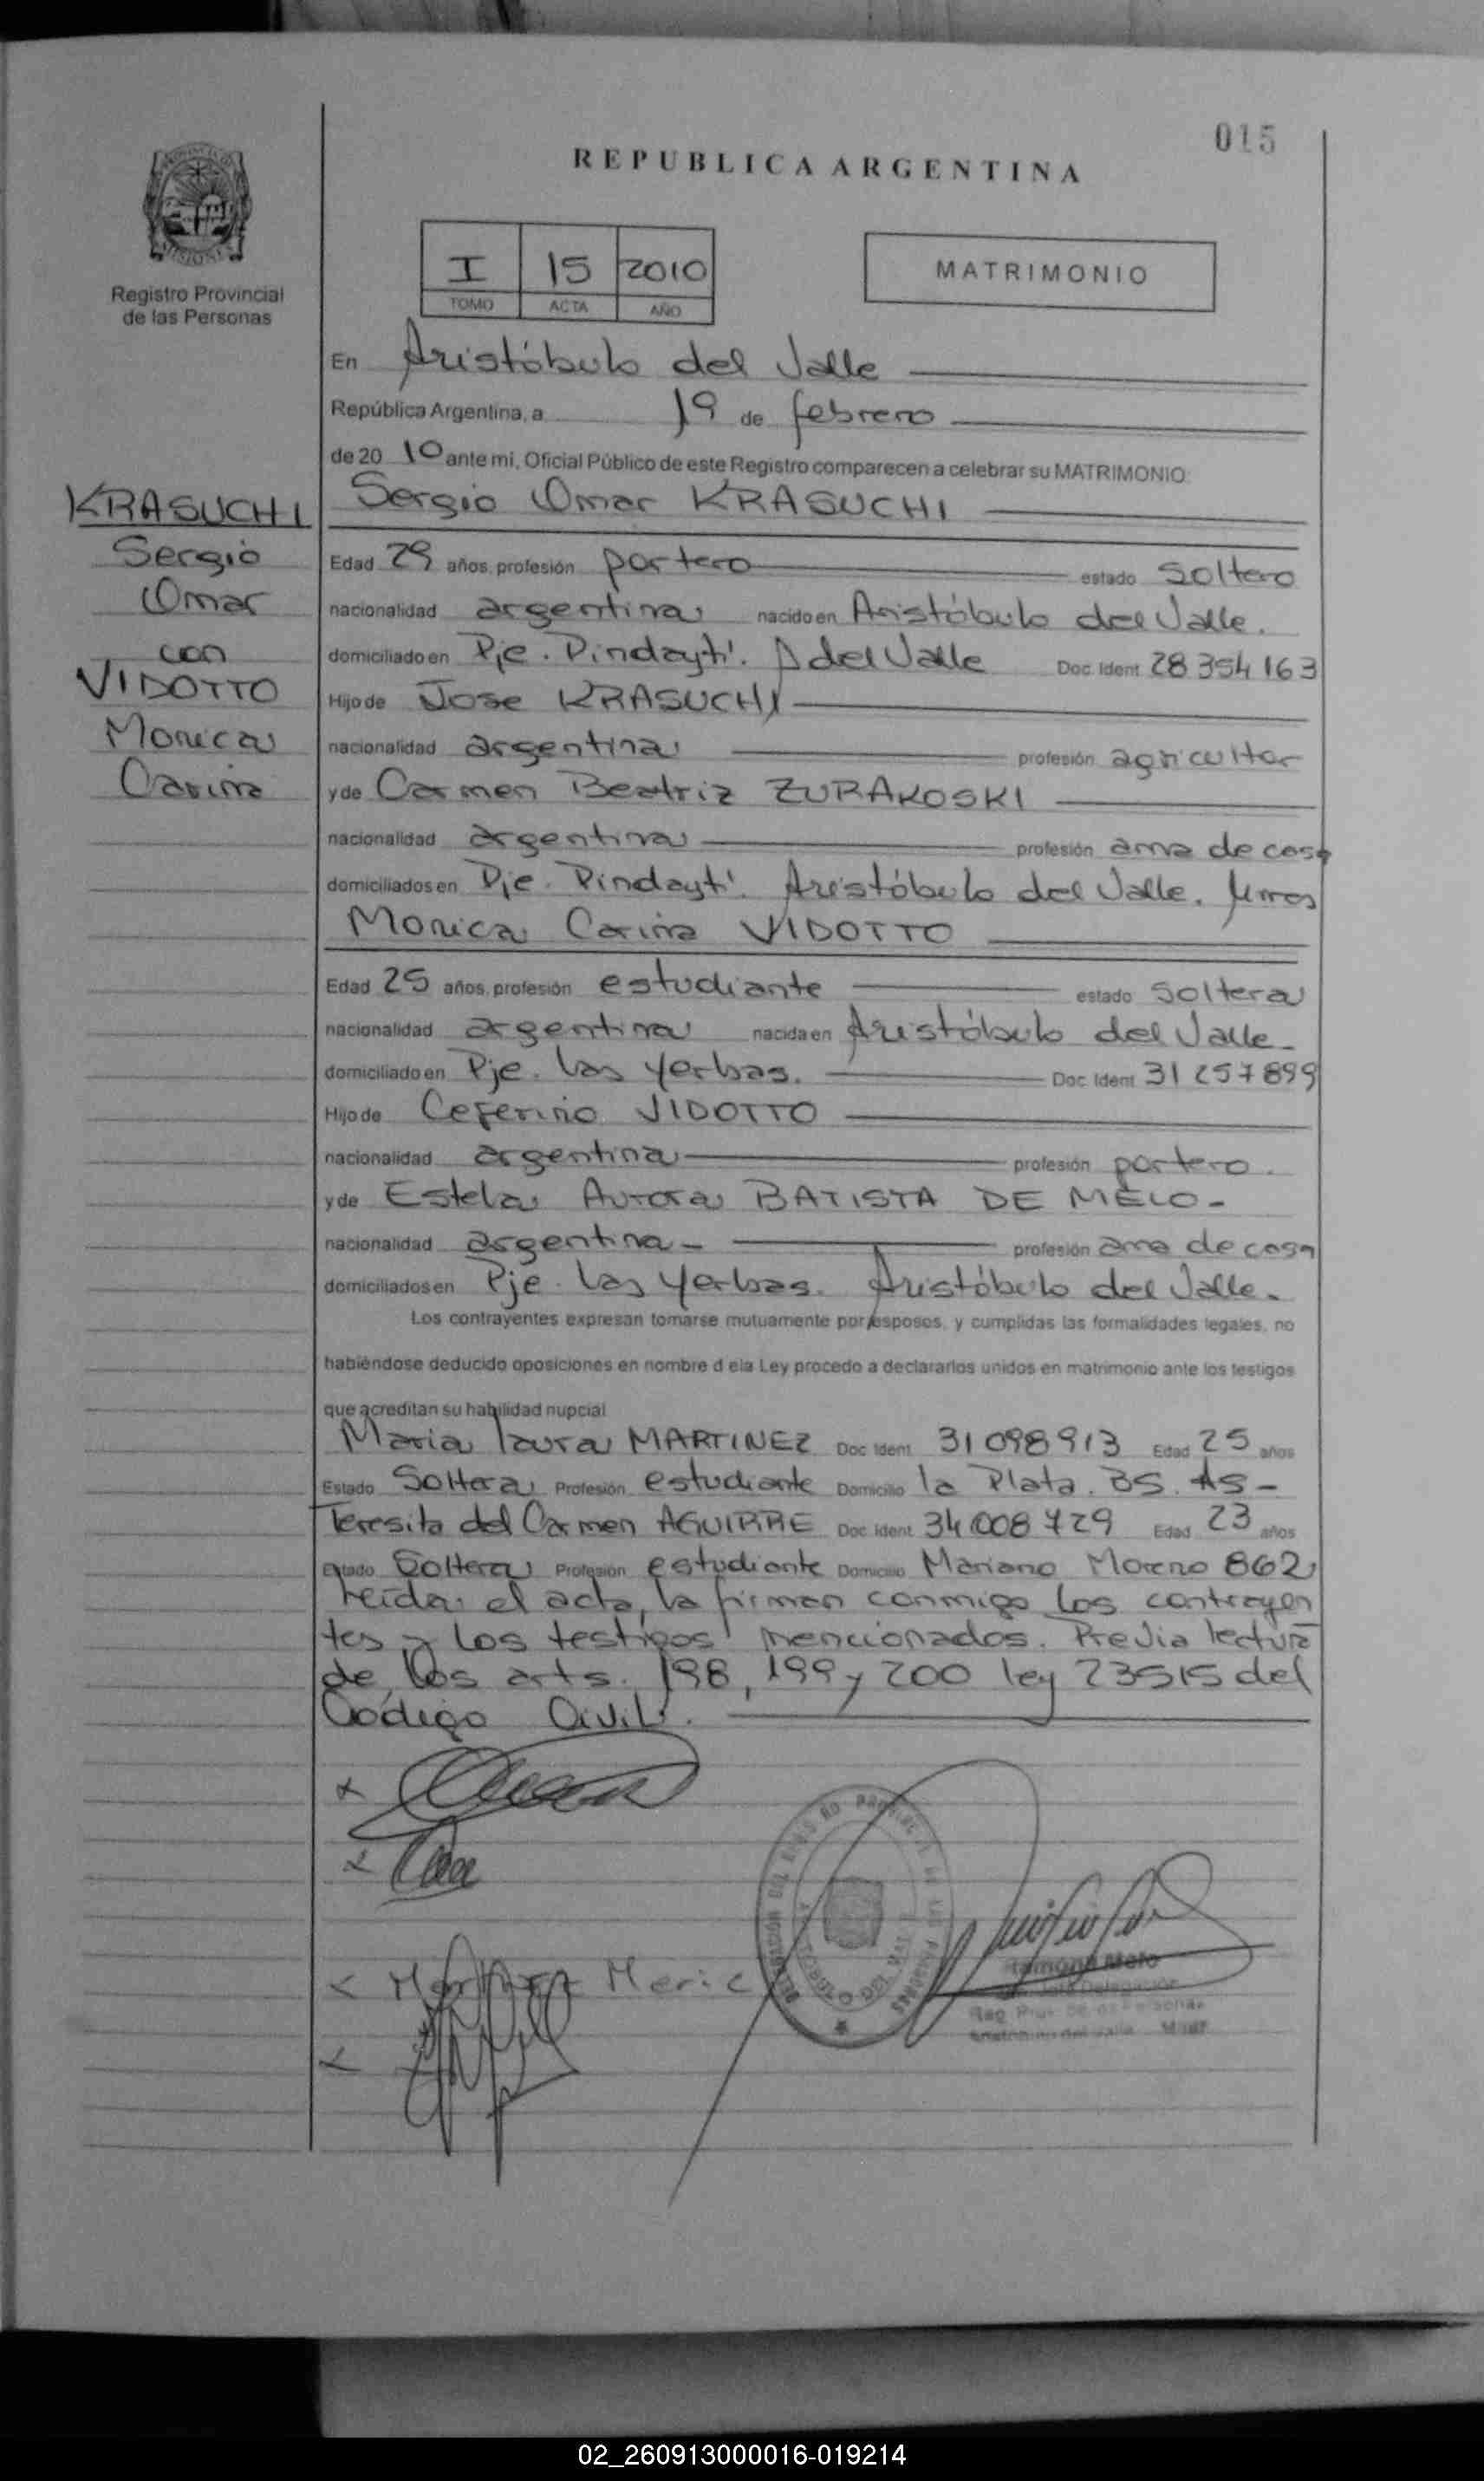 015
REPUBLICA ARGENTINA
I 15 2010
TOMO ACTA AÑO
MATRIMONIO
Registro Provincial
de las Personas
En Aristóbulo del Valle
República Argentina, a 19 de febrero
de 20 10 ante mi, Oficial Público de este Registro comparecen a celebrar su MATRIMONIO:
KRASUCHI
Sergio
Omar
con
VIDOTTO
Monica
Carina
Sergio Omar KRASUCHI
Edad 29 años, profesión portero estado Soltero
nacionalidad argentina nacido en Aristóbulo del Valle.
domiciliado en Pje. Pindayti. A del Valle Doc. Ident 28 354 163
Hijo de Jose KRASUCHI
nacionalidad argentina profesión agricultor
y de Carmen Beatriz ZURAKOSKI
nacionalidad argentina profesión ama de casa
domiciliados en Pje. Pindayti. Aristóbulo del Valle.
Monica Carina VIDOTTO
Edad 25 años, profesión estudiante estado Soltera
nacionalidad argentina nacida en Aristóbulo del Valle-
domiciliado en Pje. Las Yerbas. Doc. Ident 31 257 899
Hijo de Ceferino VIDOTTO
nacionalidad argentina profesión portero.
y de Estela Aurora BATISTA DE MELO-
nacionalidad argentina- profesión ama de casa
domiciliados en Pje. Las Yerbas. Aristóbulo del Valle-
Los contrayentes expresan tomarse mutuamente por esposos, y cumplidas las formalidades legales, no
habiéndose deducido oposiciones en nombre d ela Ley procedo a declararlos unidos en matrimonio ante los testigos
que acreditan su habilidad nupcial
Maria laura MARTINEZ Doc Ident 31 098 913 Edad 25 años
Estado Soltera Profesión estudiante Domicilio la Plata. BS. AS-
Teresita del Carmen AGUIRRE Doc. Ident 34 008 729 Edad 23 años
Estado Soltera Profesión estudiante Domicilio Mariano Moreno 862,
Leida el acta, la firman conmigo los contrayen
tes y los testigos mencionados. Previa lectura
de los arts. 198, 199 y 200 ley 23515 del
Código Civil.
Martinez Maria
02_260913000016-019214